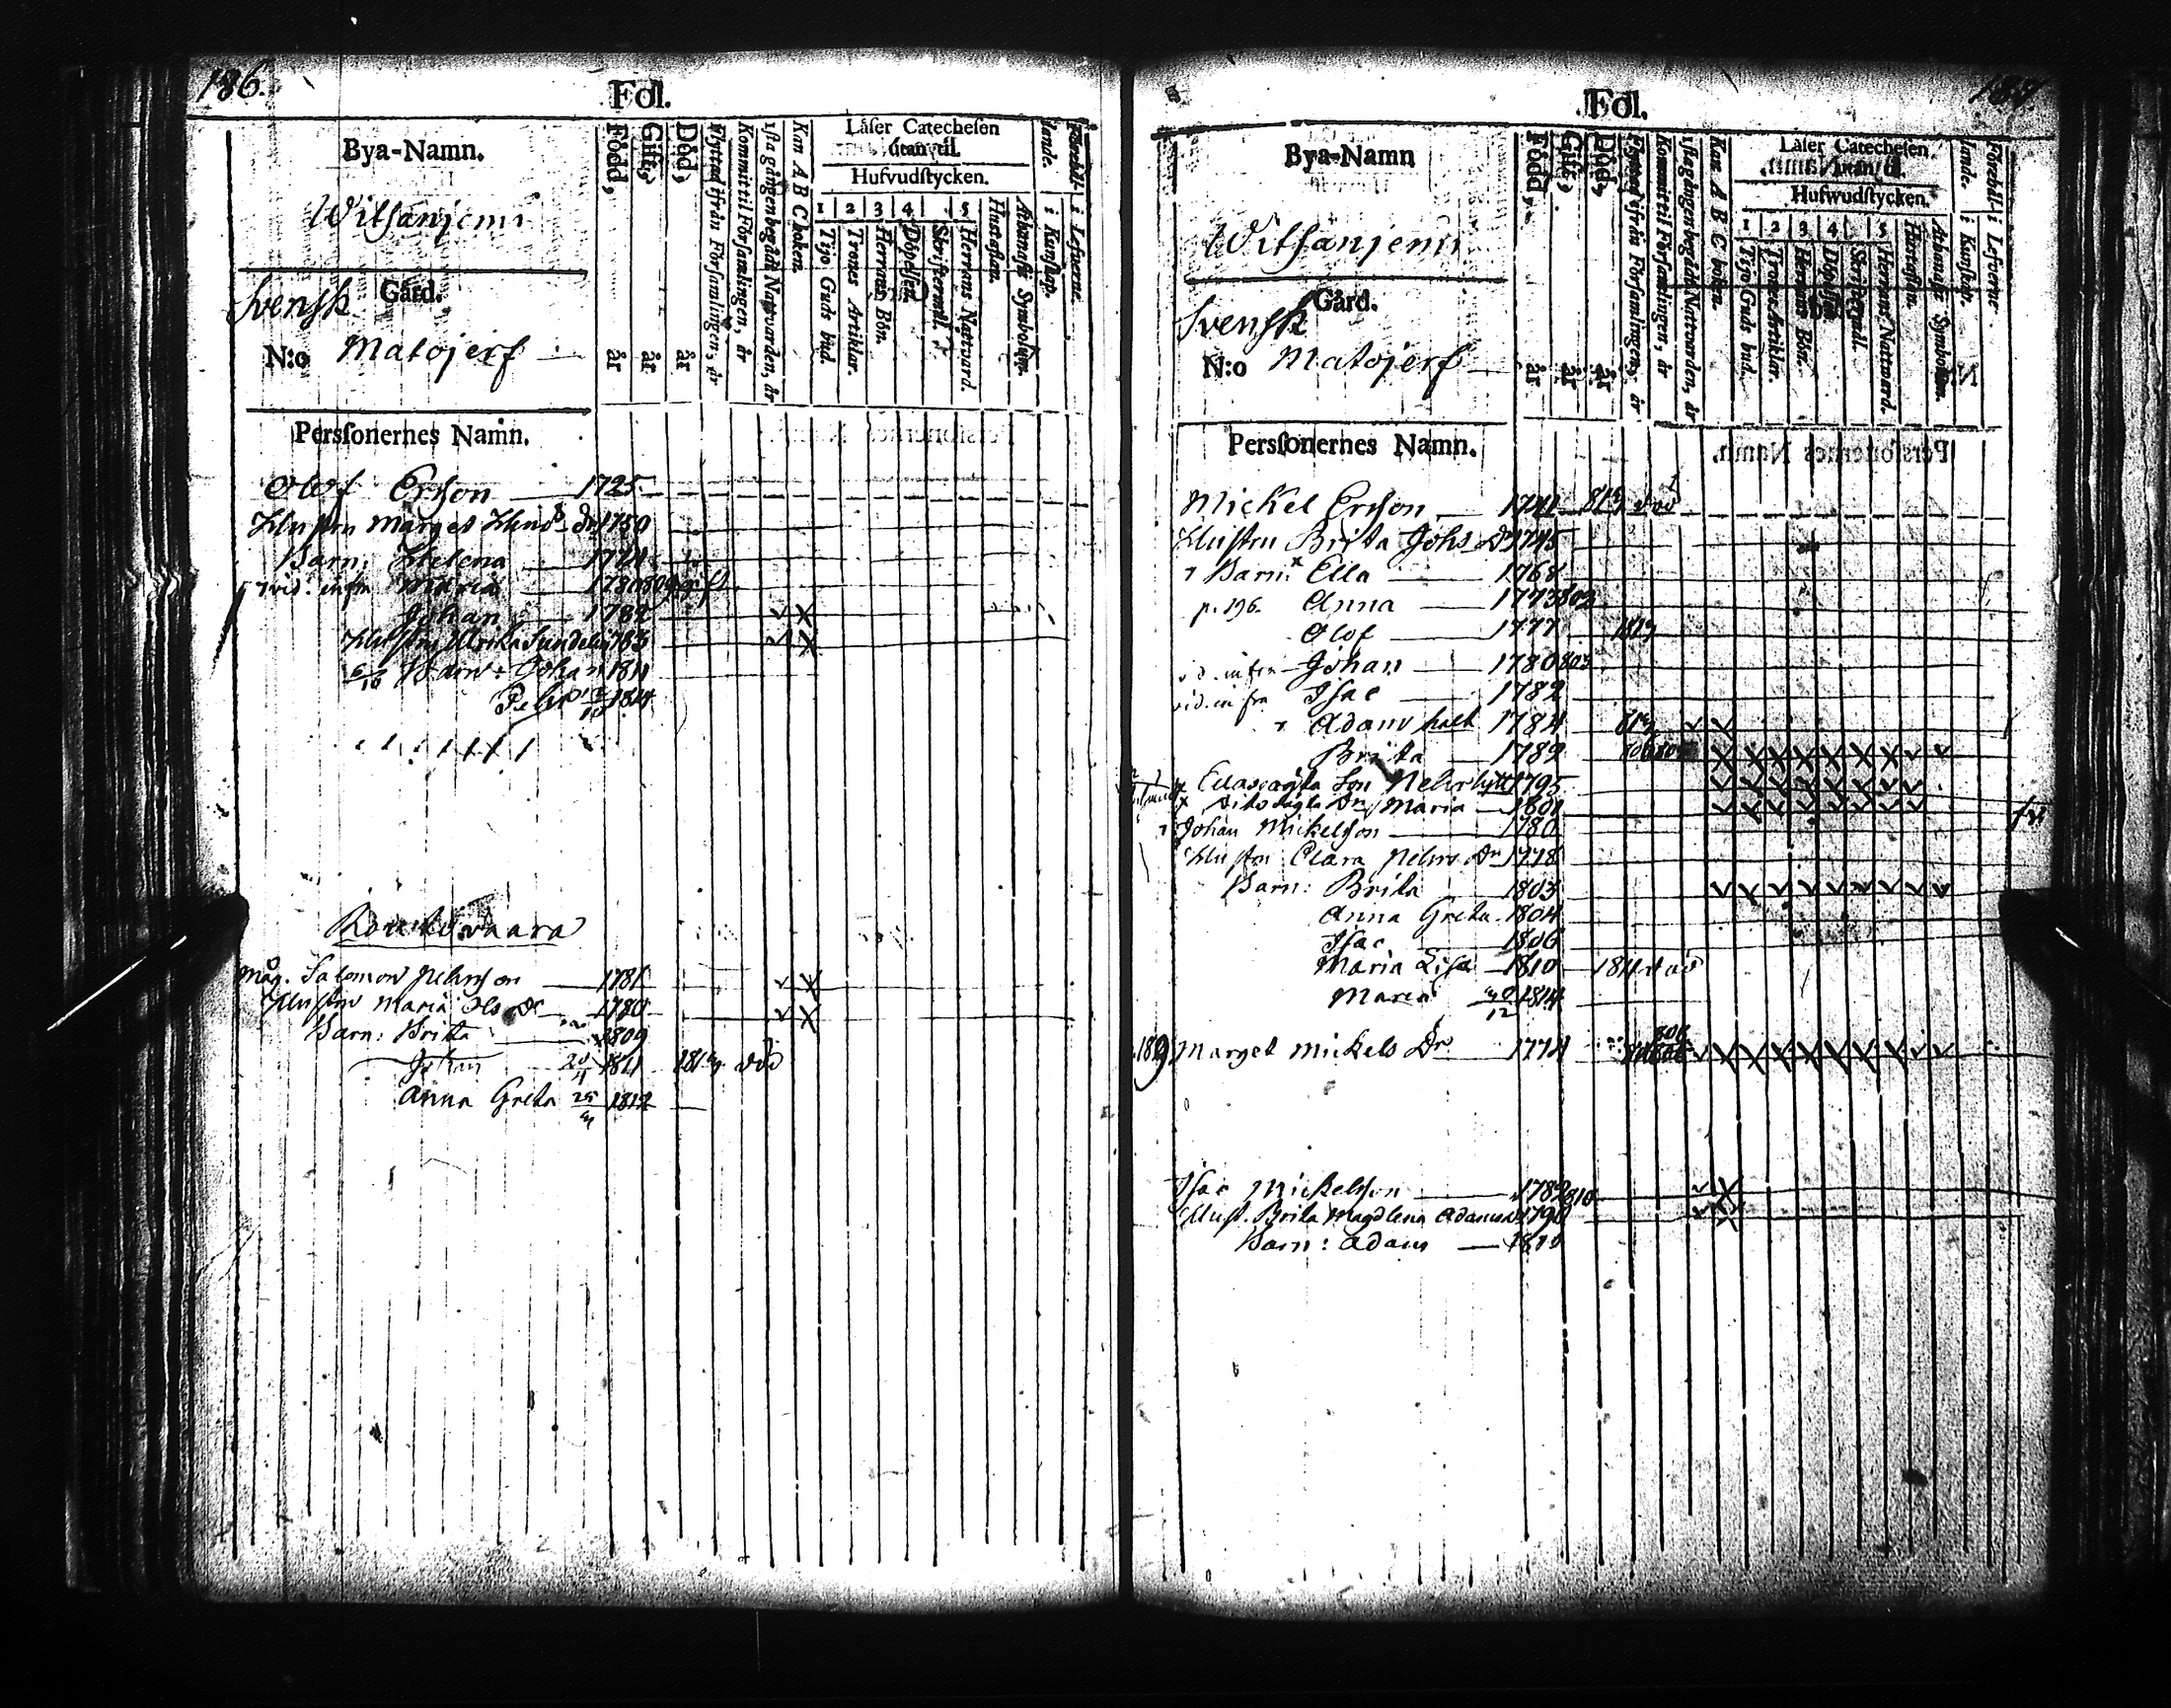 186.
Fol.
Bya-Namn.
Witsanjemi
Svensk Gård.
N:o Matojerf
Född, år
Gift, år
Död, år
Flyttad ifrån Församlingen, år
Kommit til Församlingen, år
1sta gången begådt Nattvarden, år
Kan A B C boken.
Läser Catechesen
utan til.
Hufvudstycken.
1 2 3 4 5
Tijo Guds bud.
Trones Artiklar.
Herrans Bön.
Döpelsen.
Skriftermål.
Herrens Nattvard.
Hustaflan.
Athanasii Symbolum.
Förehållande.
i Kunskap.
i Lefverne.
Persſonernes Namn.
Olof Erson 1725
Hustru Marget Hend. dr 1750
Barn: Helena
vid. infra Maria 1780 809 gift
Johan 1782
Hustru Ulrika Sundelin 1783
Barn: Johan 1811
Pehr 1814
vaara
Måg. Salomon Pehrsson 1781
Hustru Maria Ols Dr 1780
Barn: Brita 1809
Johan 1811 död
Anna Greta 25 1812
187
Fol.
Bya-Namn
Witsanjemi
Svensk Gård.
N:o Matojerf
Född, år
Gift, år
Död, år
Flyttad ifrån Församlingen, år
Kommit til Församlingen, år
1sta gången begådt Nattvarden, år
Kan A B C boken.
Läser Catechesen
utan til.
Hufwudstycken.
1 2 3 4 5
Tijo Guds bud.
Trones Artiklar.
Herrans Bön.
Döpelsen.
Skriftermål.
Herrens Nattvard.
Hustaflan.
Athanasii Symbolum.
Förehållande.
i Kunskap.
i Lefverne.
Persſonernes Namn.
Mickel Erson 1741 död
Hustru Brita Johs Dr 1745
Barn: Ella 1768
p. 196. Anna 1773 803
Olof 1777
vid. infra Johan 1780 803
vid. infra Isac 1782
Adam halt 1784
Brita 1789
Ellas oägta Son Pehr 1795
Dito oägta Dr Maria 1801
Johan Mickelson 1780
Hustru Clara Pehrs Dr 1778
Barn: Brita 1803
Anna Greta 1804
Isac 1806
Maria Lisa 1810 1811 död
Maria 1814
189 Marget Mickels Dr 1774
Isac Mickelson 1782 810
Hust. Brita Magdlena Adams 1790
Barn: Adam 1810